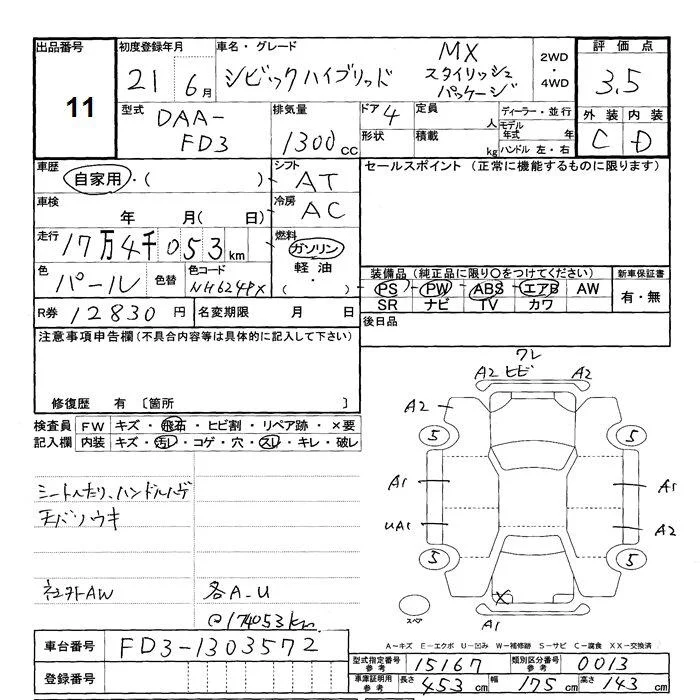 出品番号
11
初度登録年月
21 6月
車名・グレード
シビックハイブリッド
MX
スタイリッシュ
パッケージ
2WD
・
4WD
評価点
3.5
型式
DAA-
FD3
排気量
1300cc
ドア 4
形状
定員 人
積載 kg
ディーラー・並行
モデル年式 年
ハンドル 左・右
外装 内装
C D
車歴
自家用・( )
シフト
AT
車検
年 月( 日)
冷房
AC
走行
17万4千053km
燃料
ガソリン
軽油
( ・ )
色
パール
色替
色コード
NH624PX
セールスポイント (正常に機能するものに限ります)
装備品 (純正品に限り○をつけてください)
PS PW ABS エアB AW
SR ナビ TV カワ
新車保証書
有・無
R券 12830円
名変期限 月 日
後日品
注意事項申告欄(不具合内容等は具体的に記入して下さい)
修復歴 有 〔箇所 〕
検査員記入欄
FW キズ・飛石・ヒビ割・リペア跡・×要
内装 キズ・汚レ・コゲ・穴・スレ・キレ・破レ
シートヘタリ、ハンドルハゲ
天バリウキ
社外AW
各A-U
@174053km
ワレ
A2 ヒビ A2
A2 A2
5 5
A1 A1
UA1 A2
5 5
X
スペア
A1
A〜キズ E−エクボ U−凹み W−補修跡 S−サビ C−腐食 XX−交換済
車台番号 FD3-1303572
登録番号
型式指定番号
参考
15167
類別区分番号
参考
0013
車庫証明用
参考
長さ 453cm 幅 175cm 高さ 143cm